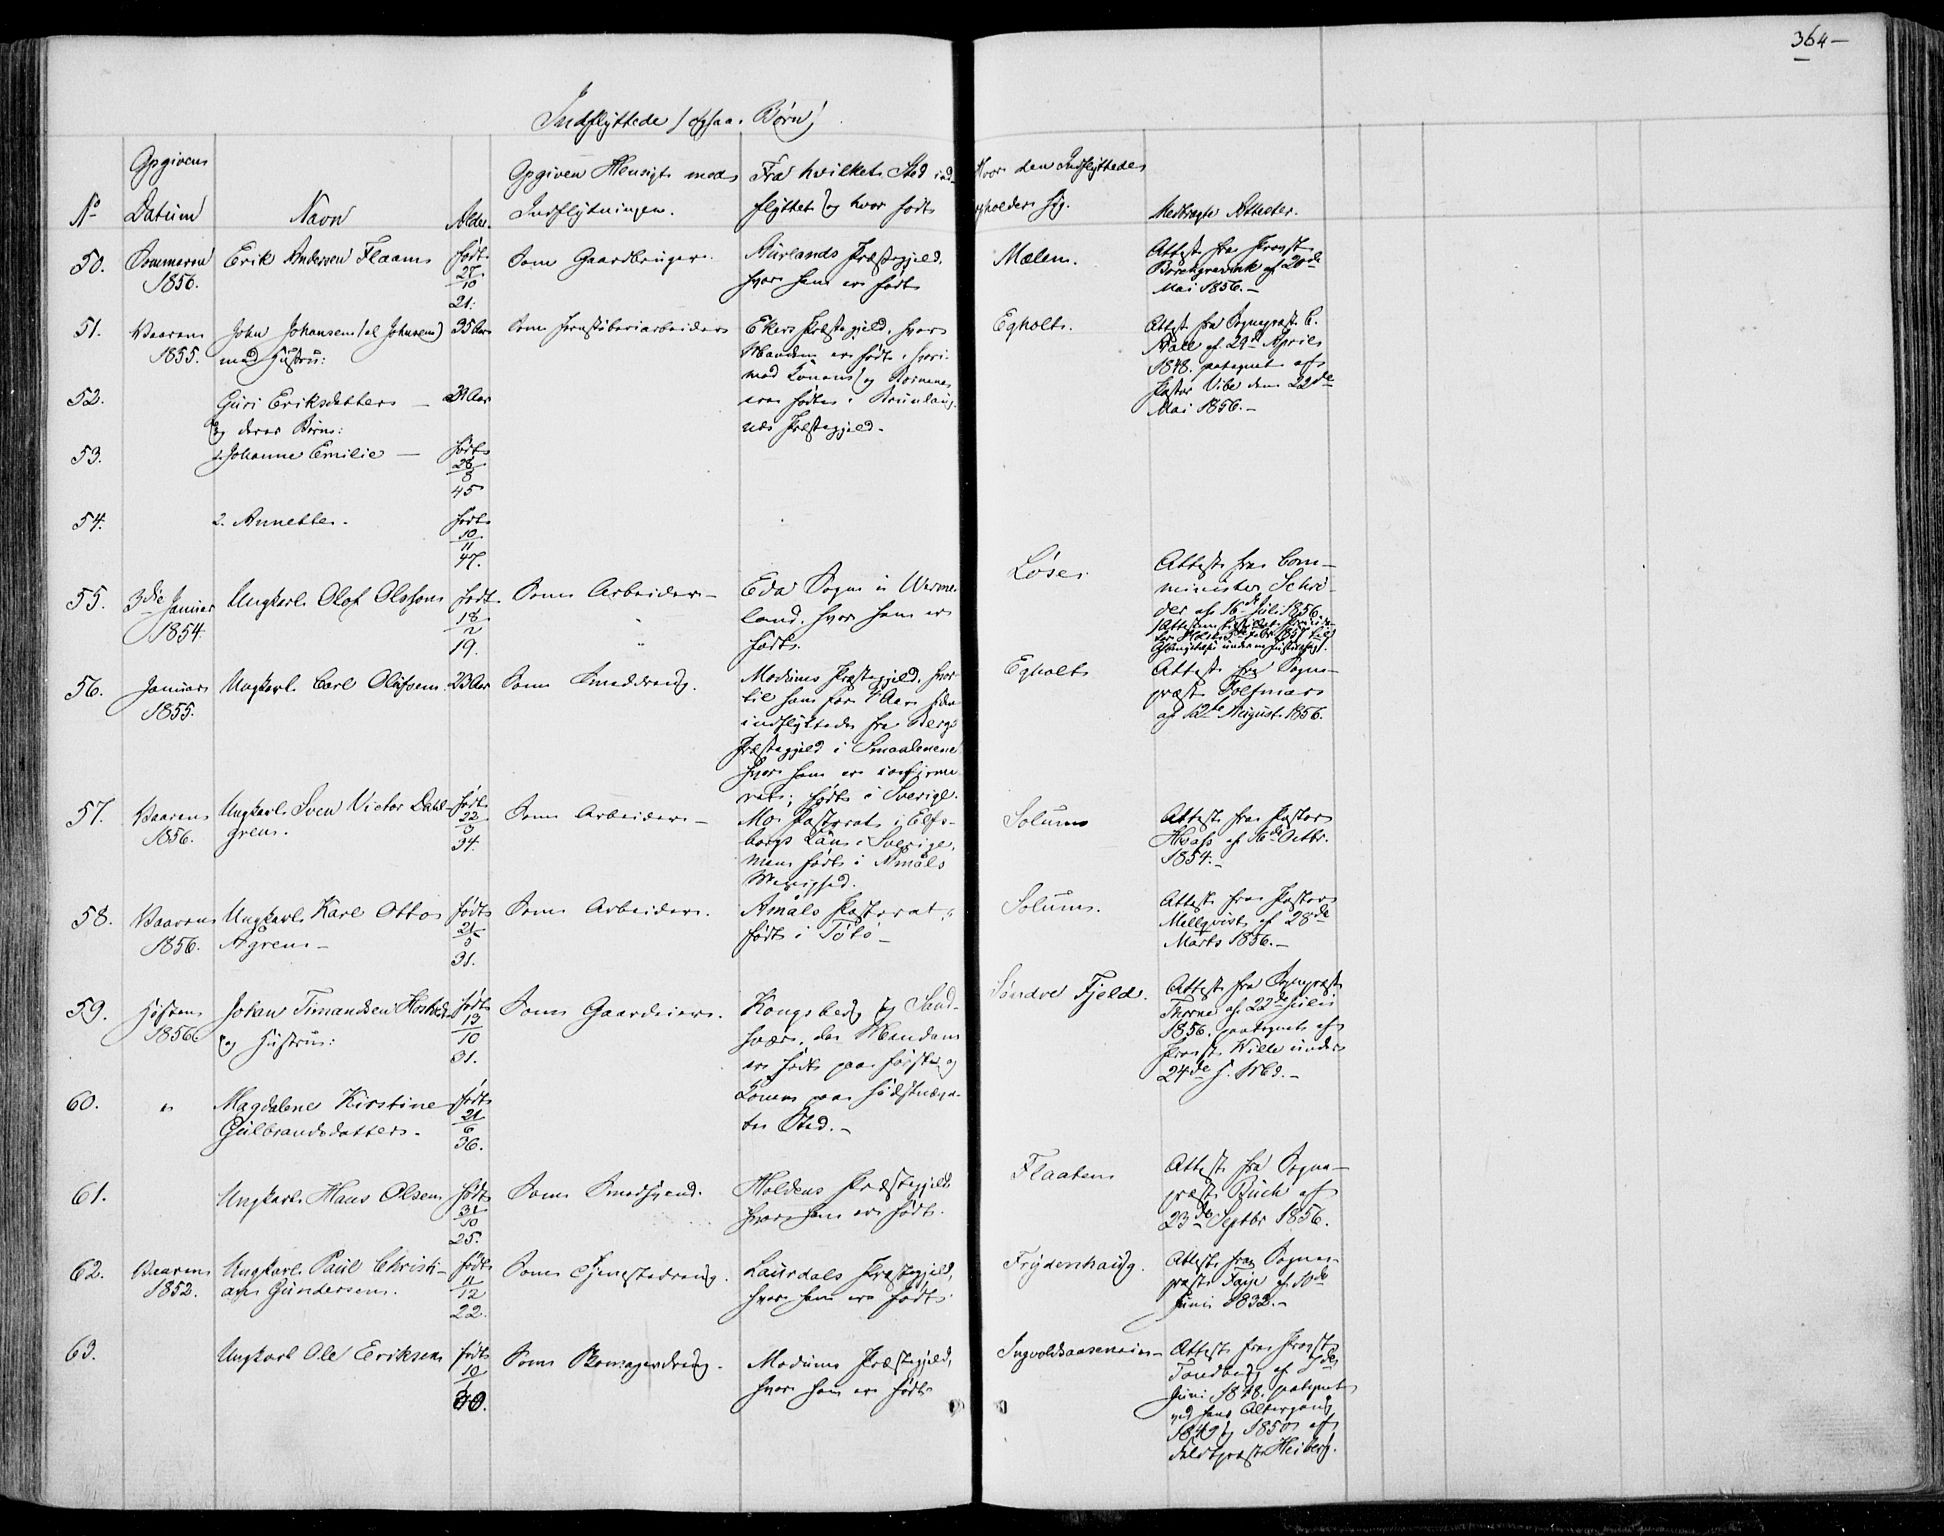 364-
Indflyttede (ogsaa Børn)
No
Opgiven Datum
Navn
Alder
Opgiven Hensigt med Indflytningen.
Fra hvilket Sted indflyttet og hvor født
Hvor den Indflyttede opholder sig.
Medbragte Attester.
50.
Sommeren
1856.
Erik Andersen Flaam
født
27
10
21.
Som Gaardbruger.
Aurlands Præstegjeld,
hvor han er født
Mælen.
Attest fra Provst
af 20de
Mai 1856.-
51.
Vaaren
1855.
John Johansen (el Johnsen)
med Hustru:
35 Aar
Som Jernstøberiarbeider
Ekers Præstegjeld, hvor
Manden er født, hvori-
mod Konen og Børnene
ere fødte i Brunlaug-
næs Præstegjeld.
Egholt.
Attest fra Sognepræst C.
af 29d April
1848. paategnet af
Pastor Vibe den 22de
Mai 1856.-
52.
Guri Eriksdatter -
og deres Børn:
53.
1. Johanne Emilie -
født
28
8
45
54.
2. Annette.
født
10
11
47.
55.
3die Januar
1854.
Ungkarl Olof Olsson
født
18
2
19.
Som Arbeider -
Eda Sogn i Werme-
land, hvor han er
født.
Løse.
Attest fra Com-
minister Schrö-
der af 16de Juli 1856.
56.
Januar
1855.
Ungkarl Carl Olufsen.
23 Aar
Som Smeddreng.
Modums Præstegjeld, hvor-
til han for 1 Aar siden
indflyttede fra Bergs
Præstegjeld i Smaalenene
hvor han er confirme-
ret; født i Sverige.
Egholt
Attest fra Sogne-
præst
af 12te August 1856.
57.
Vaaren
1856.
Ungkarl Sven Victor Dahl-
gren.
født
22
3
34.
Som Arbeider -
Mo Pastorat i Elfs-
borgs Län i Sverige,
men født i Åmåls
Solum
Attest fra Pastor
af 16de Octbr.
1854.-
58.
Vaaren
1856.
Ungkarl Karl Otto
Ågren -
født
21
5
31.
Som Arbeider.
Åmåls Pastorat,
født i Tösö -
Solum.
Attest fra Pastor
Mellqvist af 28de
Marts 1856.-
59.
Høsten
1856
Johan Timandsen
og Hustru:
født
13
10
31.
Som Gaardeier.
Kongsberg og Sand-
svær, der Manden
er født paa første og
Konen paa sidstnævn-
te Sted.-
Søndre Fjeld.
Attest fra Sognepræst
Thorne af 22de Juli
1856. paategnet af
Provst Wille under
24de s. Md.-
60.
"
Magdalene Kirstine
Gulbrandsdatter.
født
21
6
36.
61.
Ungkarl Hans Olsen
født
31
10
25.
Som Smedsvend.
Holdens Præstegjeld
hvor han er født.
Flaaten
Attest fra Sogne-
præst Buch af
23de Septbr 1856.
62.
Vaaren
1852.
Ungkarl Paul Christi-
an Gundersen.
født
11
12
22.
Som Tjenestedreng.
Laurdals Præstegjeld,
hvor han er født
Frydenhaug.
Attest fra Sogne-
præst Faye af
Juni 1832.-
63.
Ungkarl Ole Eriksen
født
10
1
30.
Som Skomagerdreng.
Modums Præstegjeld,
hvor han er født
Attest fra Provst
Tandberg af 7de
Juni 1848. paategnet
ved hans Altergang
1849 og 1850 af
Feldtpræst Heiberg.